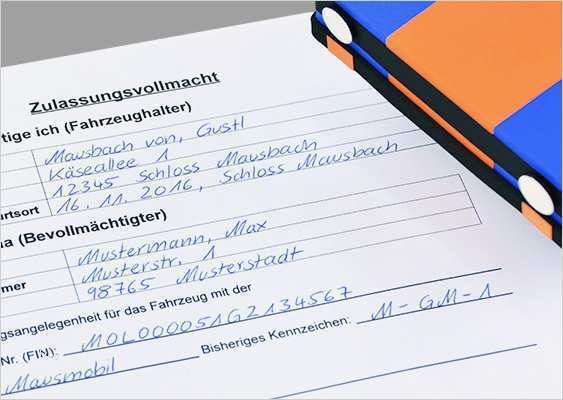 Zulassungsvollmacht
tige ich (Fahrzeughalter)
Mausbach von, Gustl
Käseallee 1
12345 Schloss Mausbach
urtsort 16.11.2016, Schloss Mausbach
a (Bevollmächtigter)
Mustermann, Max
Musterstr. 1
mer 98765 Musterstadt
gsangelegenheit für das Fahrzeug mit der
Nr. (FIN): M0L000051G2134567
Mausmobil Bisheriges Kennzeichen: M-GM-1